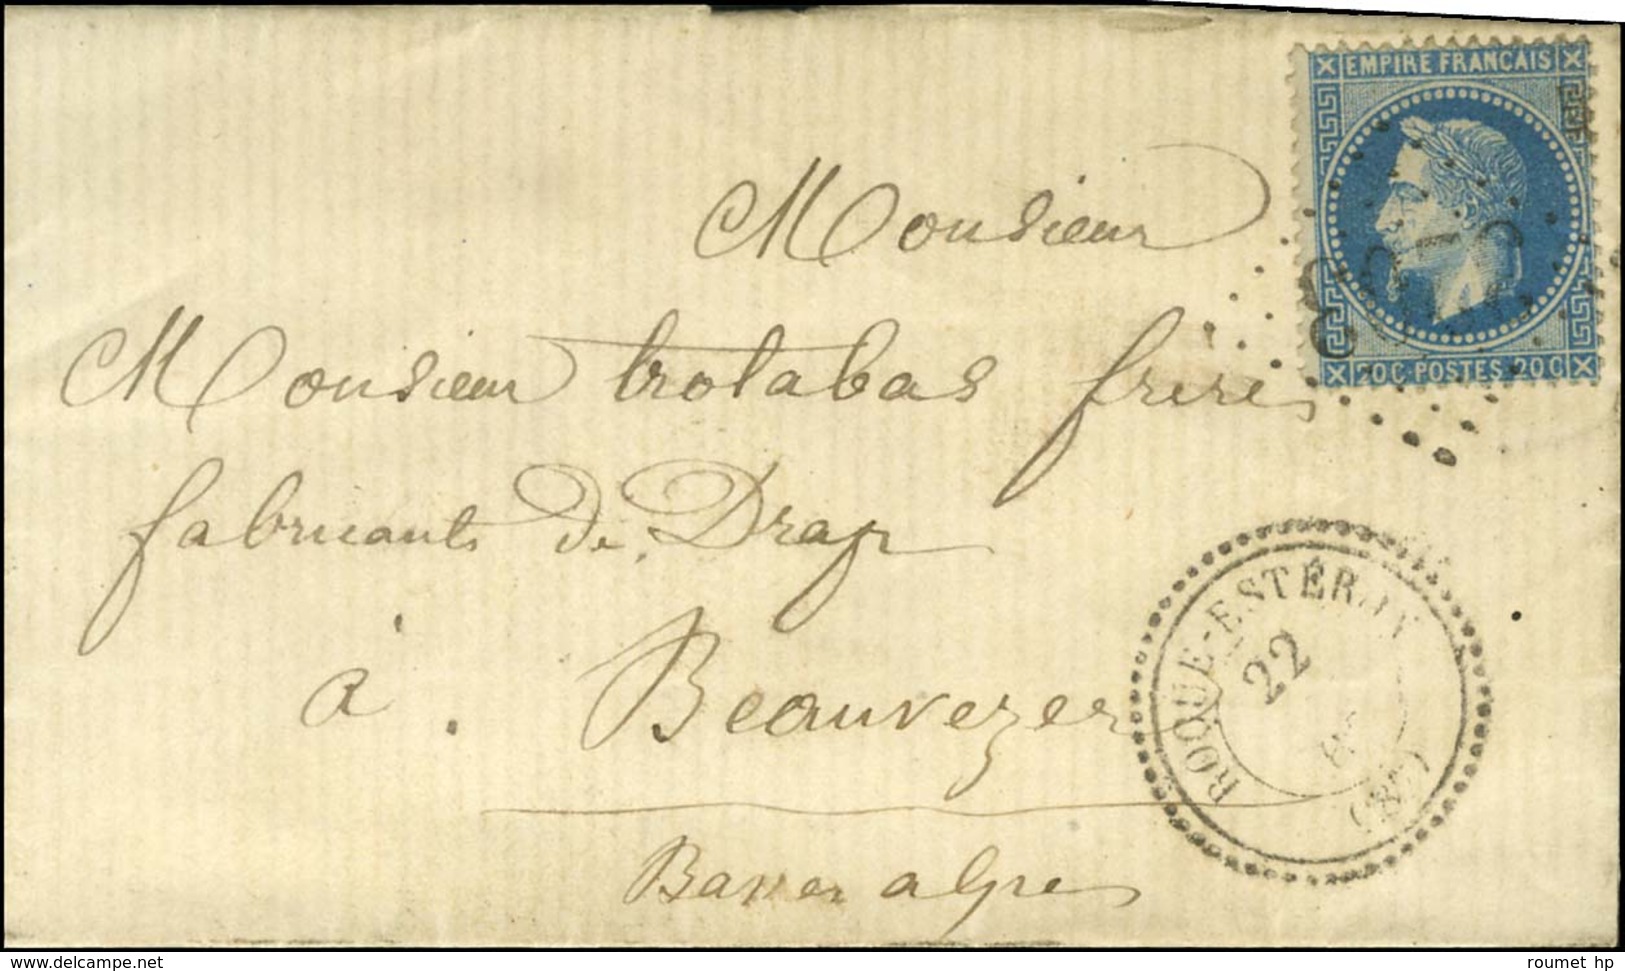 EMPIRE FRANÇAIS
20C POSTES 20C
Monsieur
Monsieur trotabas freres
fabricants de Drap
à Beauvezer
Basses alpes
ROQUE-ESTÉRON
22
(87)
www.delcampe.net
roumet hp